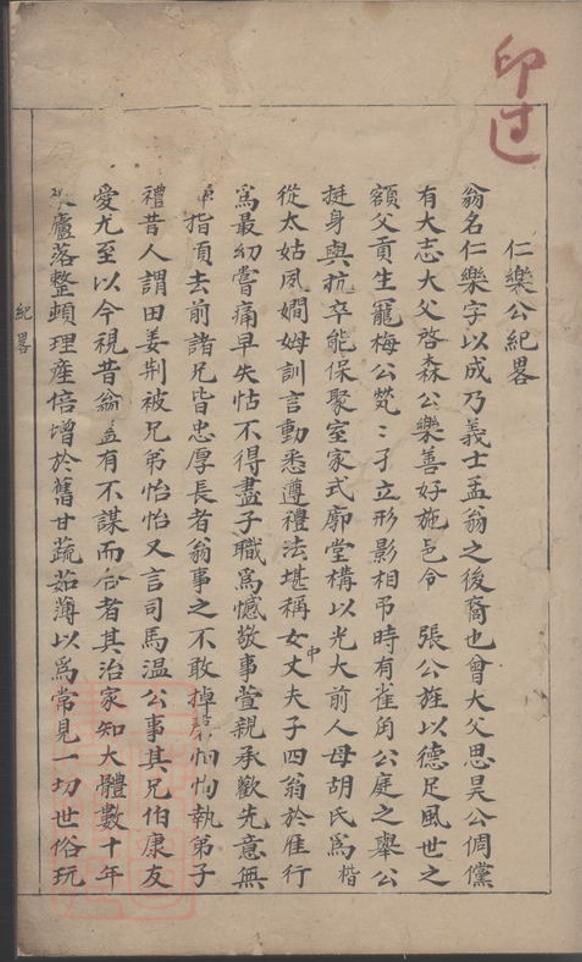 印过
仁樂公紀畧
翁名仁樂字以成乃義士孟翁之後裔也曾大父思昊公倜儻
有大志大父啓森公樂善好施邑令　張公旌以德足風世之
額父貢生寵梅公煢〻孑立形影相吊時有雀角公庭之舉公
挺身與抗卒能保聚室家式廓堂構以光大前人母胡氏為楷
從太姑夙嫺姆訓言動悉遵禮法堪稱女中丈夫子四翁於雁行
為最幼嘗痛早失怙不得盡子職為憾敬事萱親承歡先意無
指頃去前諸兄皆忠厚長者翁事之不敢掉恂恂執弟子
禮昔人謂田姜荆被兄弟怡怡又言司馬温公事其兄伯康友
愛尤至以今視昔翁盖有不謀而合者其治家知大體數十年
廬落整頓理産倍增於舊甘蔬茹薄以為常見一切世俗玩
紀畧